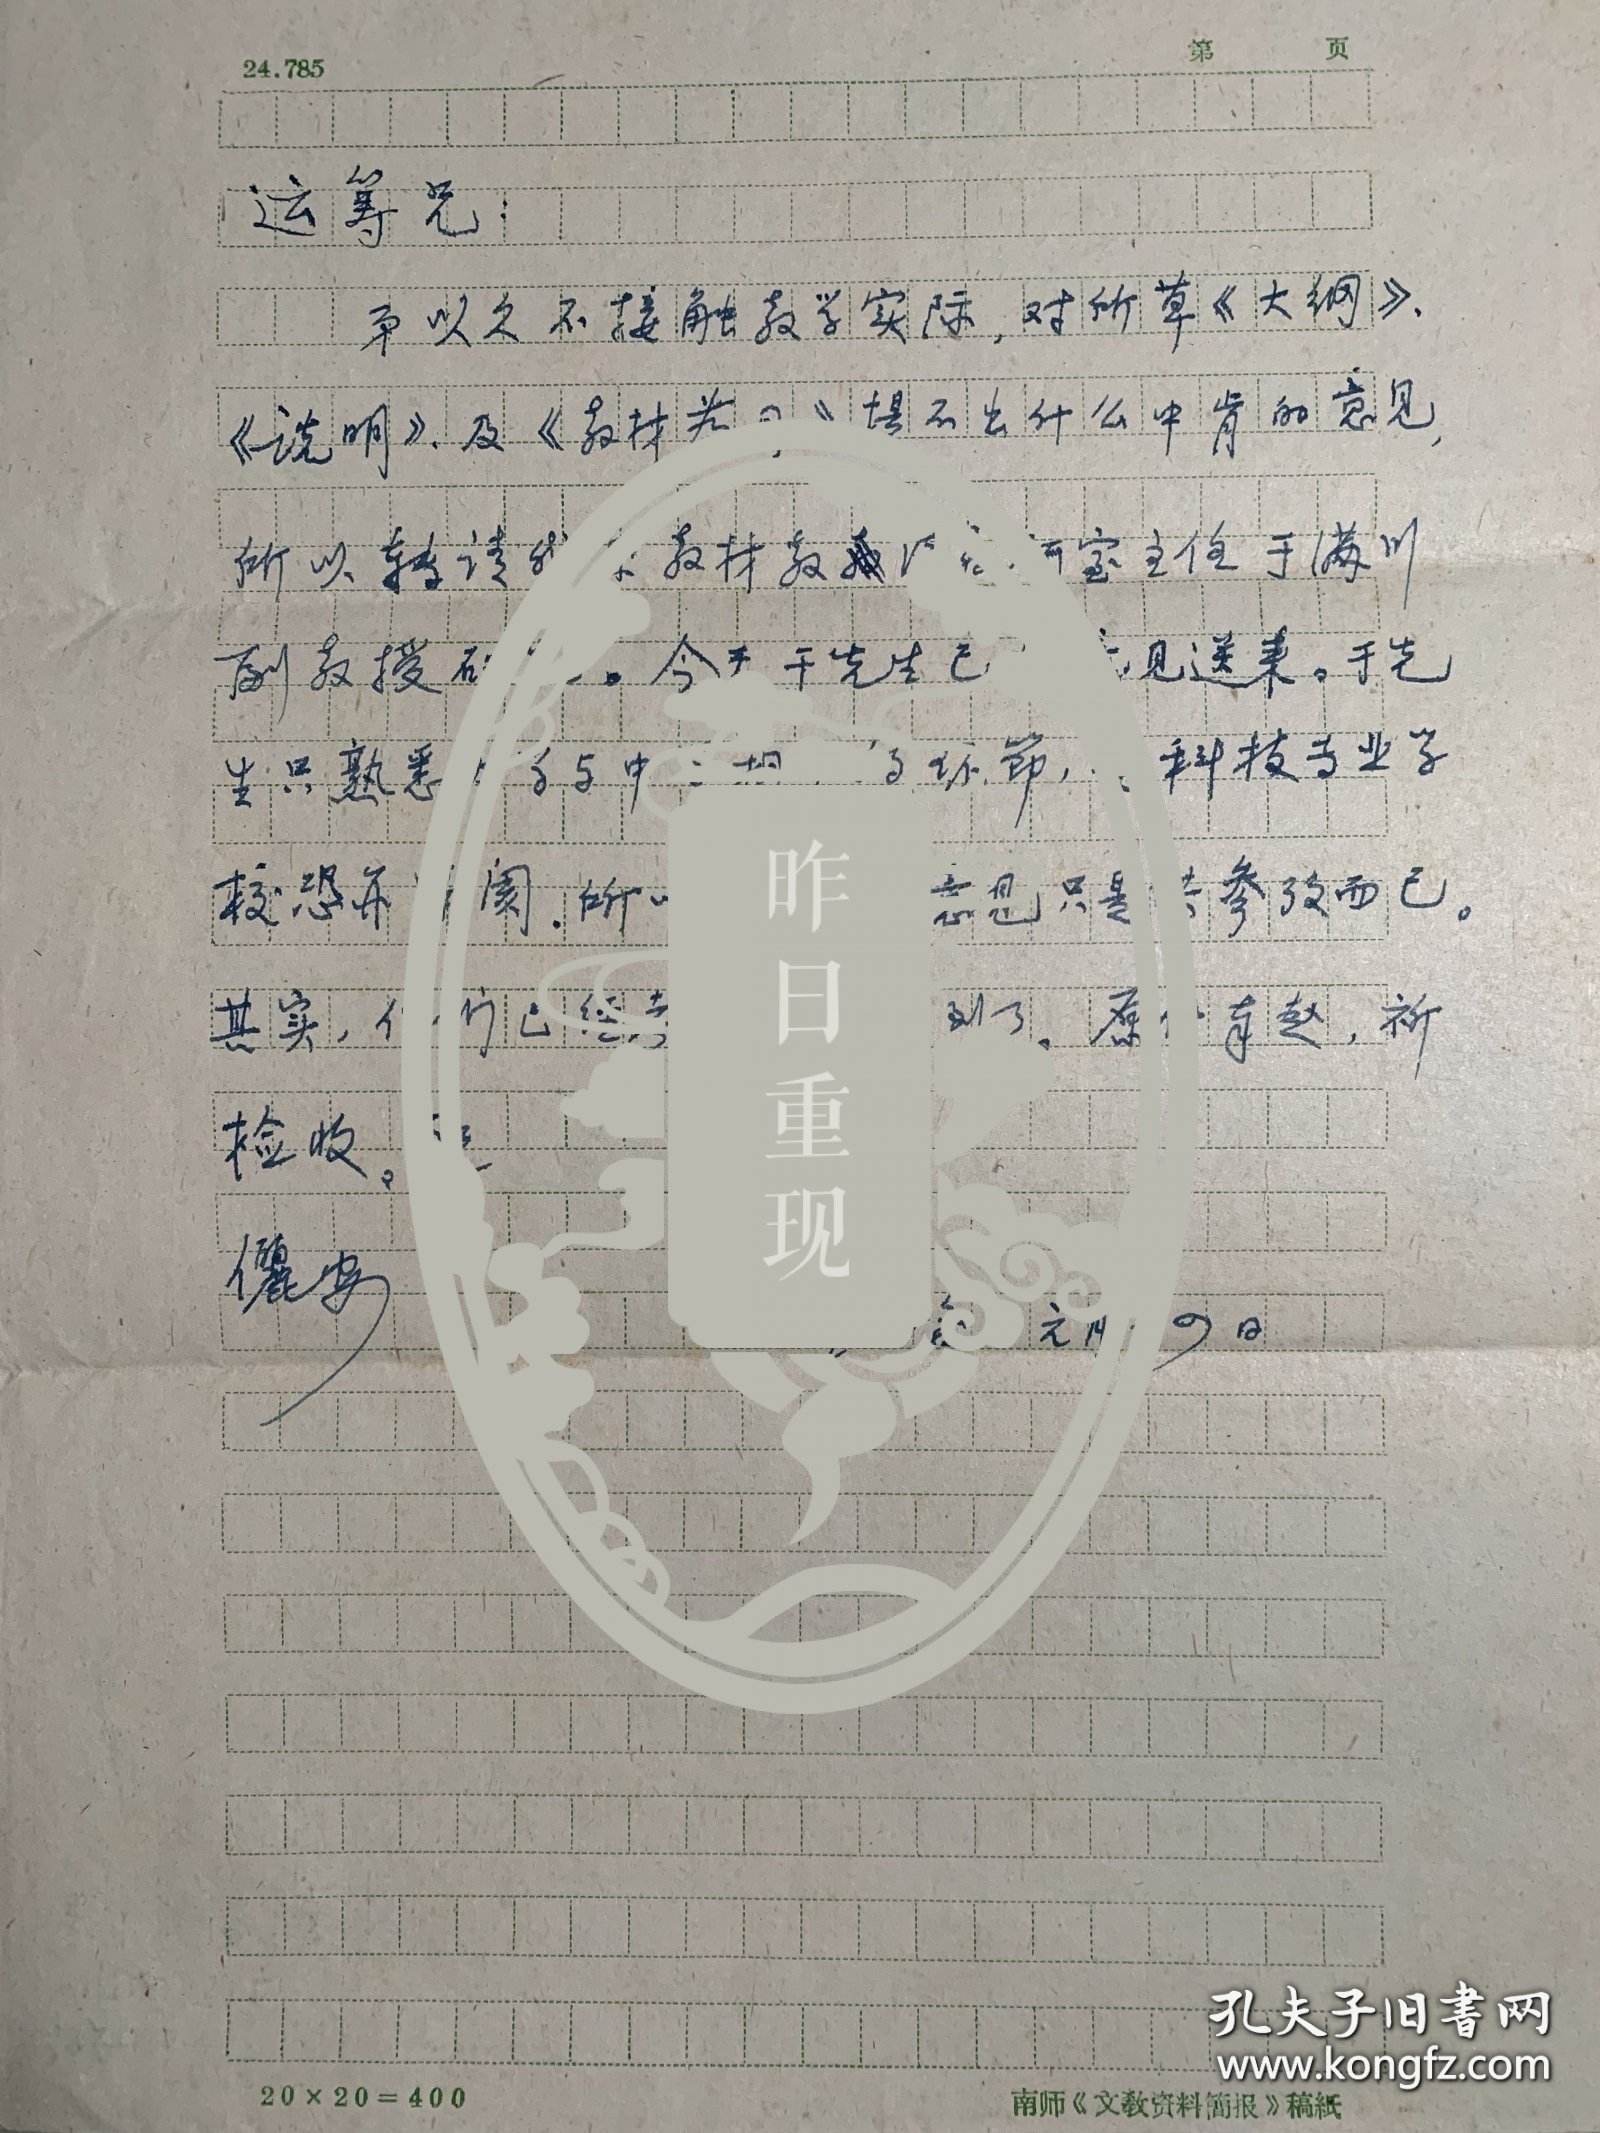 24.785 第 页
运筹兄：
弟以久不接触教学实际，对所草《大纲》、
《说明》、及《教材 》提不出什么中肯的意见，
所以转请 教材教 室主任于满川
副教授 。今天于先生已 意见送来。于先
生只熟悉 与中 环节， 科技专业学
校恐亦 阂．所以 意见只是供参考而已。
其实， 们已经 到了。原件奉赵，祈
检收。
俪安
年 元月 9日
昨日重现
孔夫子旧书网
www.kongfz.com
20×20=400 南师《文教资料简报》稿紙